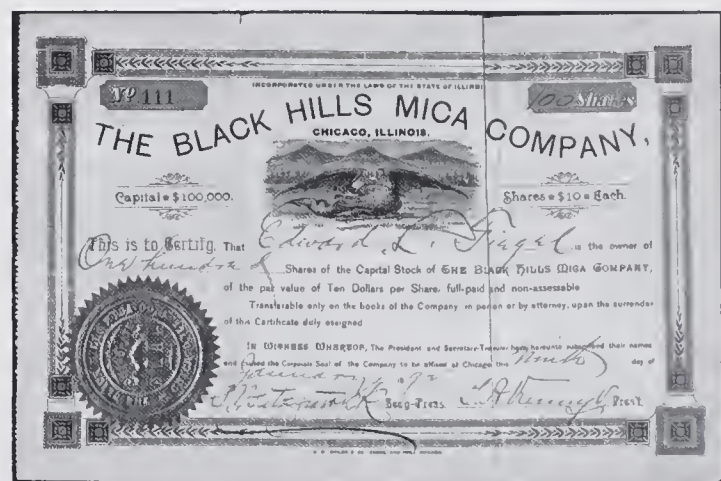 INCORPORATED UNDER THE LAWS OF THE STATE OF ILLINOIS
No 111
100 Shares
THE BLACK HILLS MICA COMPANY,
CHICAGO, ILLINOIS.
Capital $100,000.
Shares $10 Each.
This is to Certify, That Edward L. is the owner of
One hundred Shares of the Capital Stock of THE BLACK HILLS MICA COMPANY,
of the par value of Ten Dollars per Share, full-paid and non-assessable
Transferable only on the books of the Company in person or by attorney, upon the surrender
of this Certificate duly assigned
IN WITNESS WHEREOF, The President and Secretary-Treasurer have hereunto subscribed their names
and caused the Corporate Seal of the Company to be affixed at Chicago this ninth day of
January 1892
Secy-Treas. Prest.